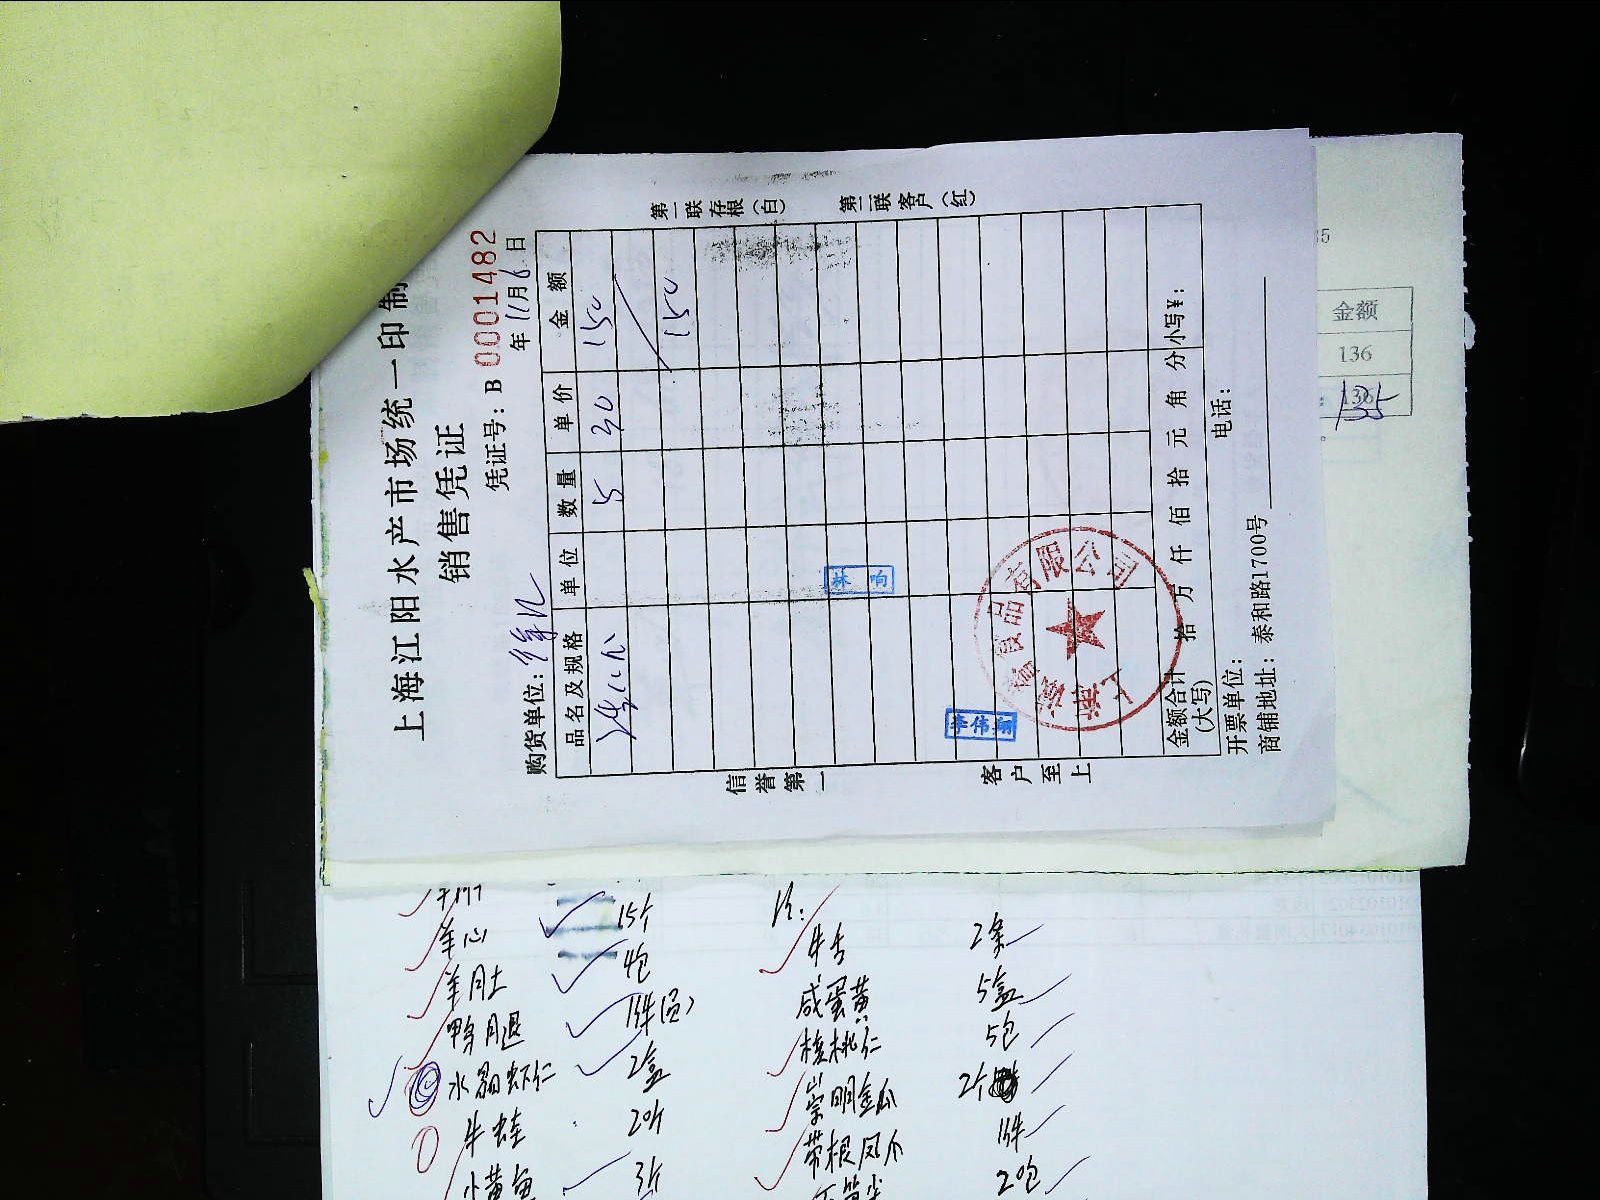 上海江阳水产市场统一印制
销售凭证
凭证号：B 0001482
购货单位：
年11月6日
品名及规格 单位 数量 单价 金额
5 30 150
150
金额合计(大写) 拾 万 仟 佰 拾 元 角 分 小写¥：
开票单位： 电话：
商铺地址：泰和路1700号
第一联存根（白） 第二联客户（红）
信誉第一 客户至上
林 响
食品有限公司
金额
136
135
羊心 15个
羊肚 4包
鸭腿 1件
水晶虾仁 2盒
牛蛙 20斤
小黄鱼 3斤
牛舌 2条
咸蛋黄 5盒
核桃仁 5包
崇明金瓜 2个
带根凤爪 1件
2包